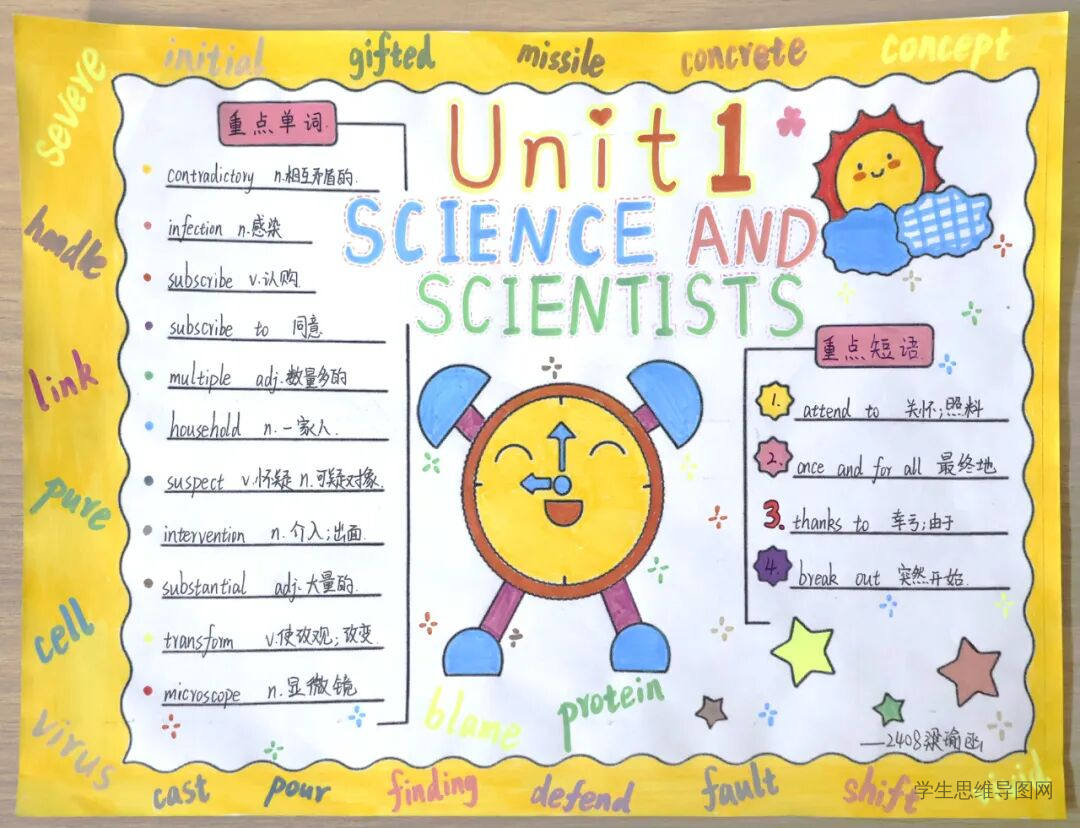 initial gifted missile concrete concept
severe
handle
link
pure
cell
virus
Unit 1
SCIENCE AND
SCIENTISTS
重点单词
contradictory n.相互矛盾的.
infection n.感染
subscribe v.认购
subscribe to 同意
multiple adj.数量多的
household n.一家人.
suspect v.怀疑 n.可疑对象.
intervention n.介入;出面.
substantial adj.大量的.
transform v.使改观;改变.
microscope n.显微镜
重点短语
1. attend to 关怀;照料
2. once and for all 最终地
3. thanks to 幸亏;由于
4. break out 突然开始.
blame protein
—2408梁瑜函
cast pour finding defend fault shift
学生思维导图网